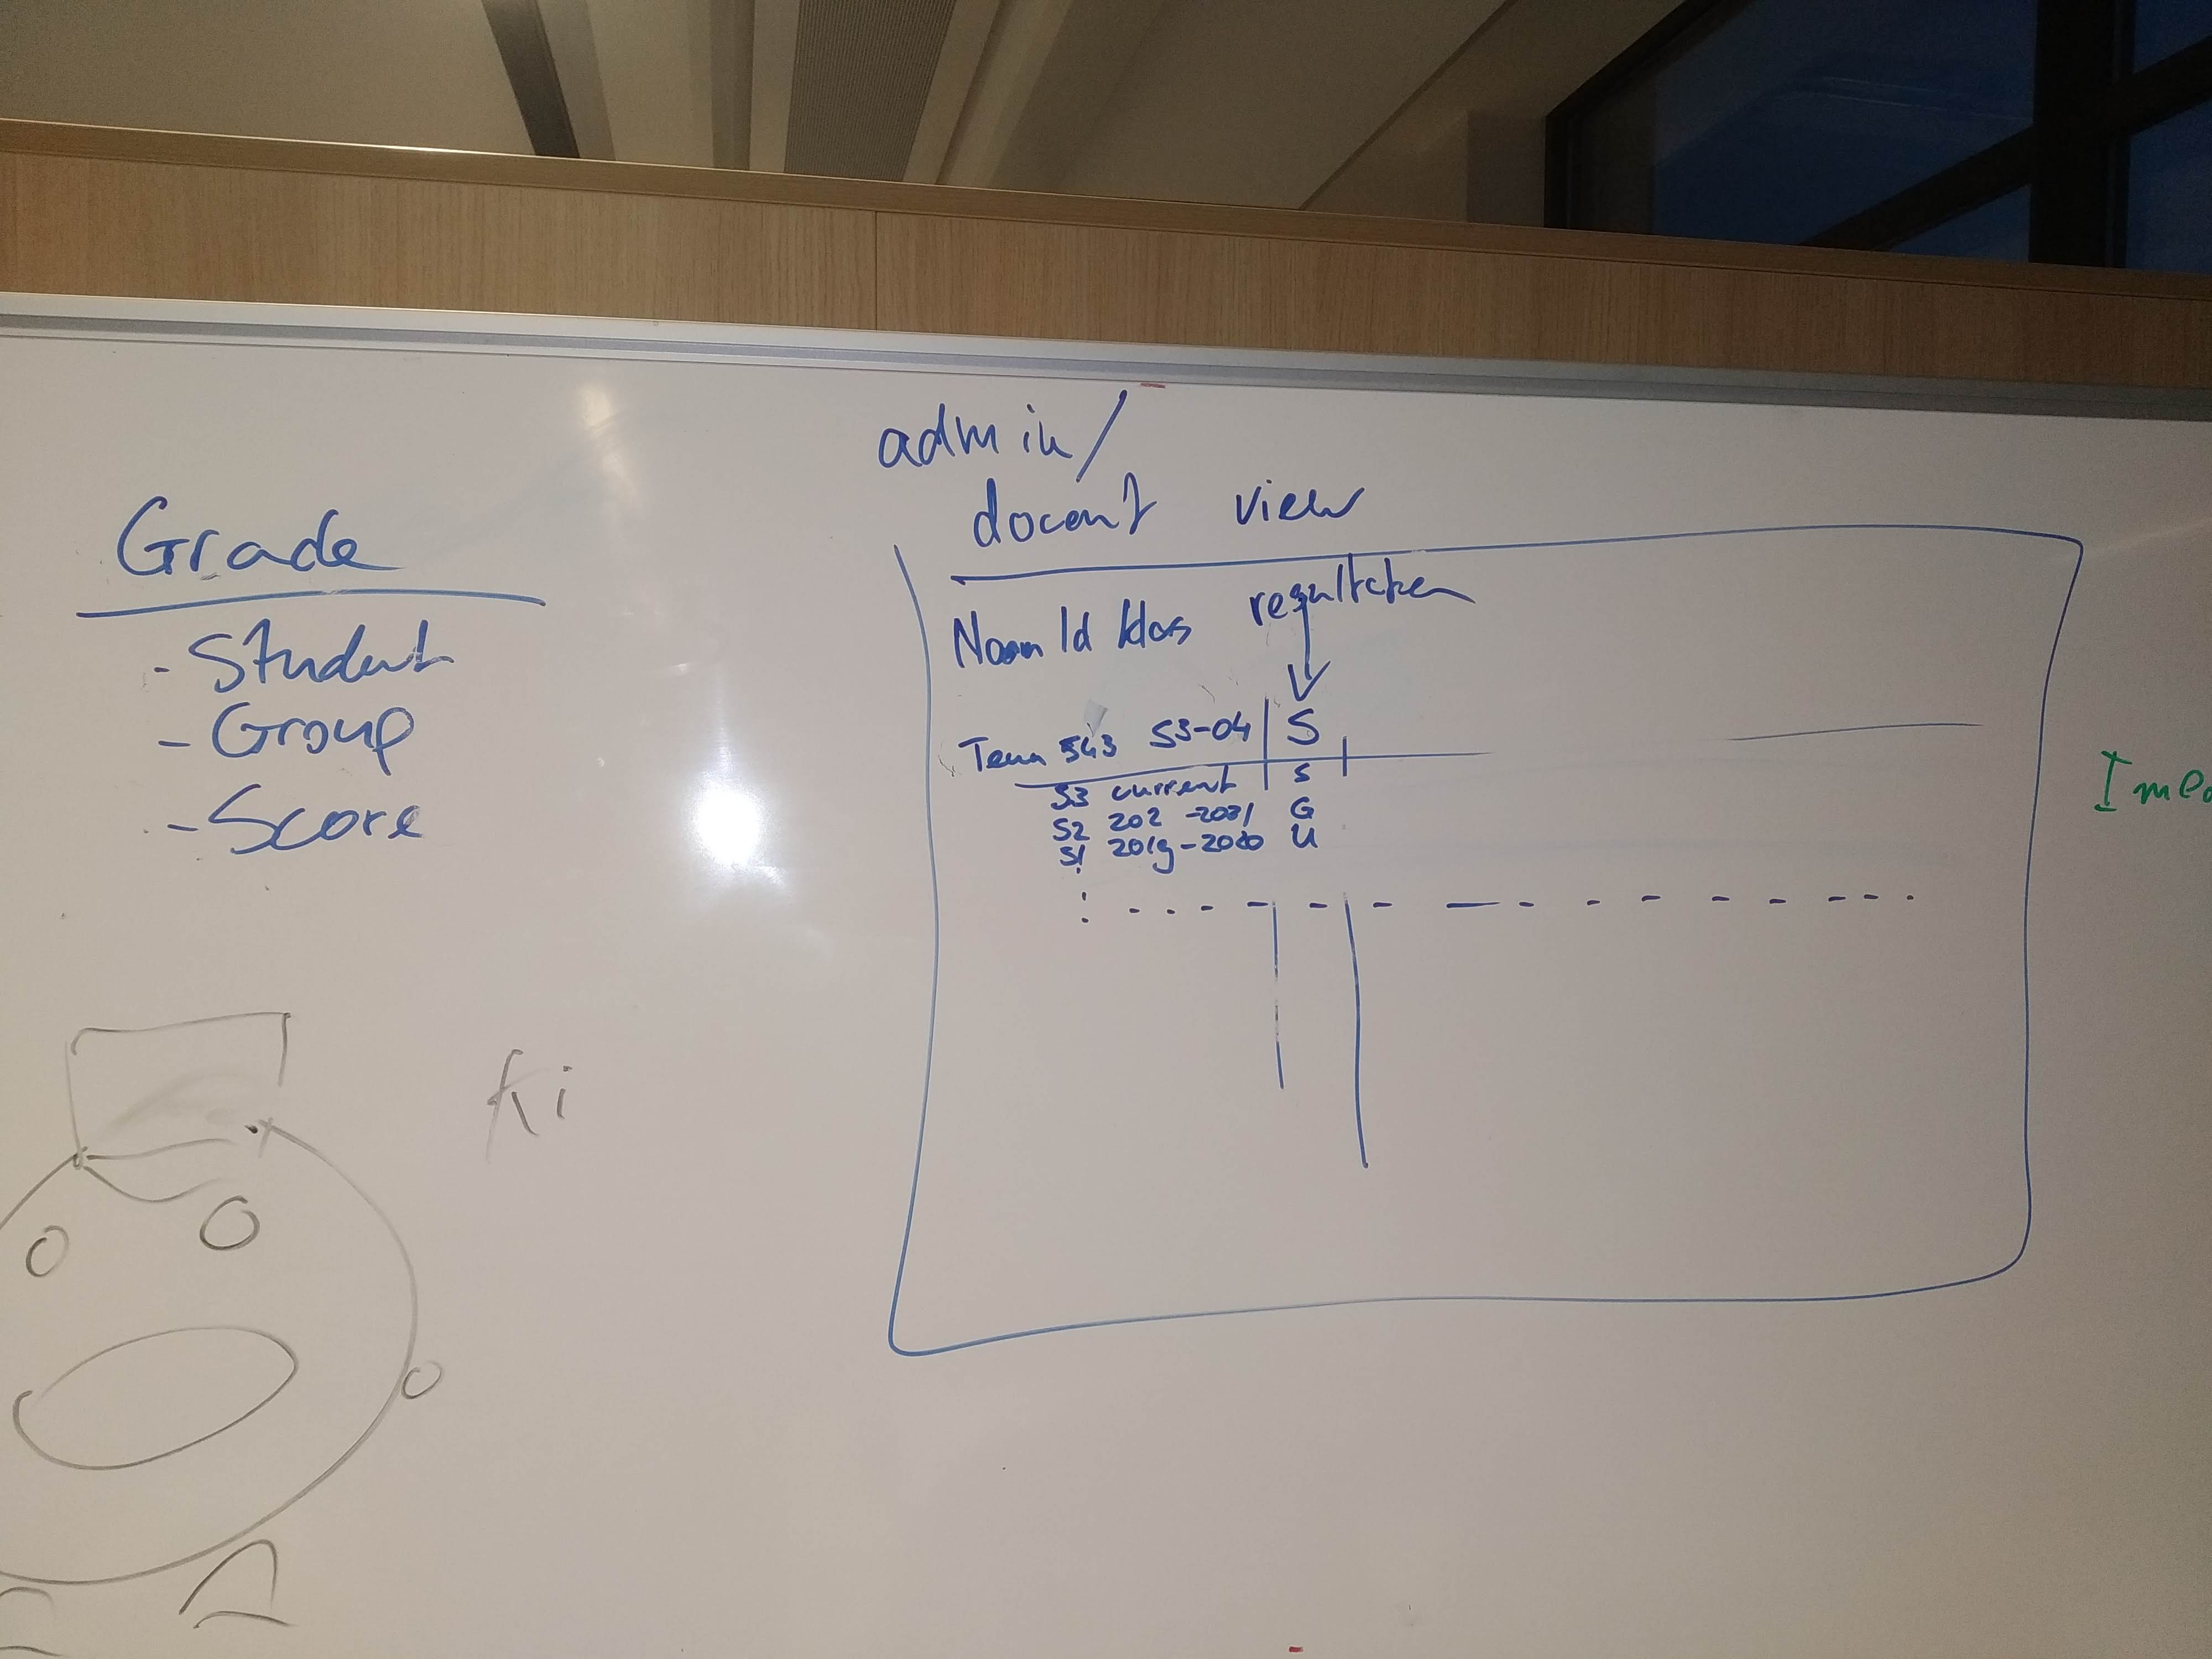 Grade
- Student
- Group
- Score
admin/
docent view
Naam Id klas resultaten
543 S3-04 S
S3 current S
S2 202 -2021 G
S1 2019-2020 U